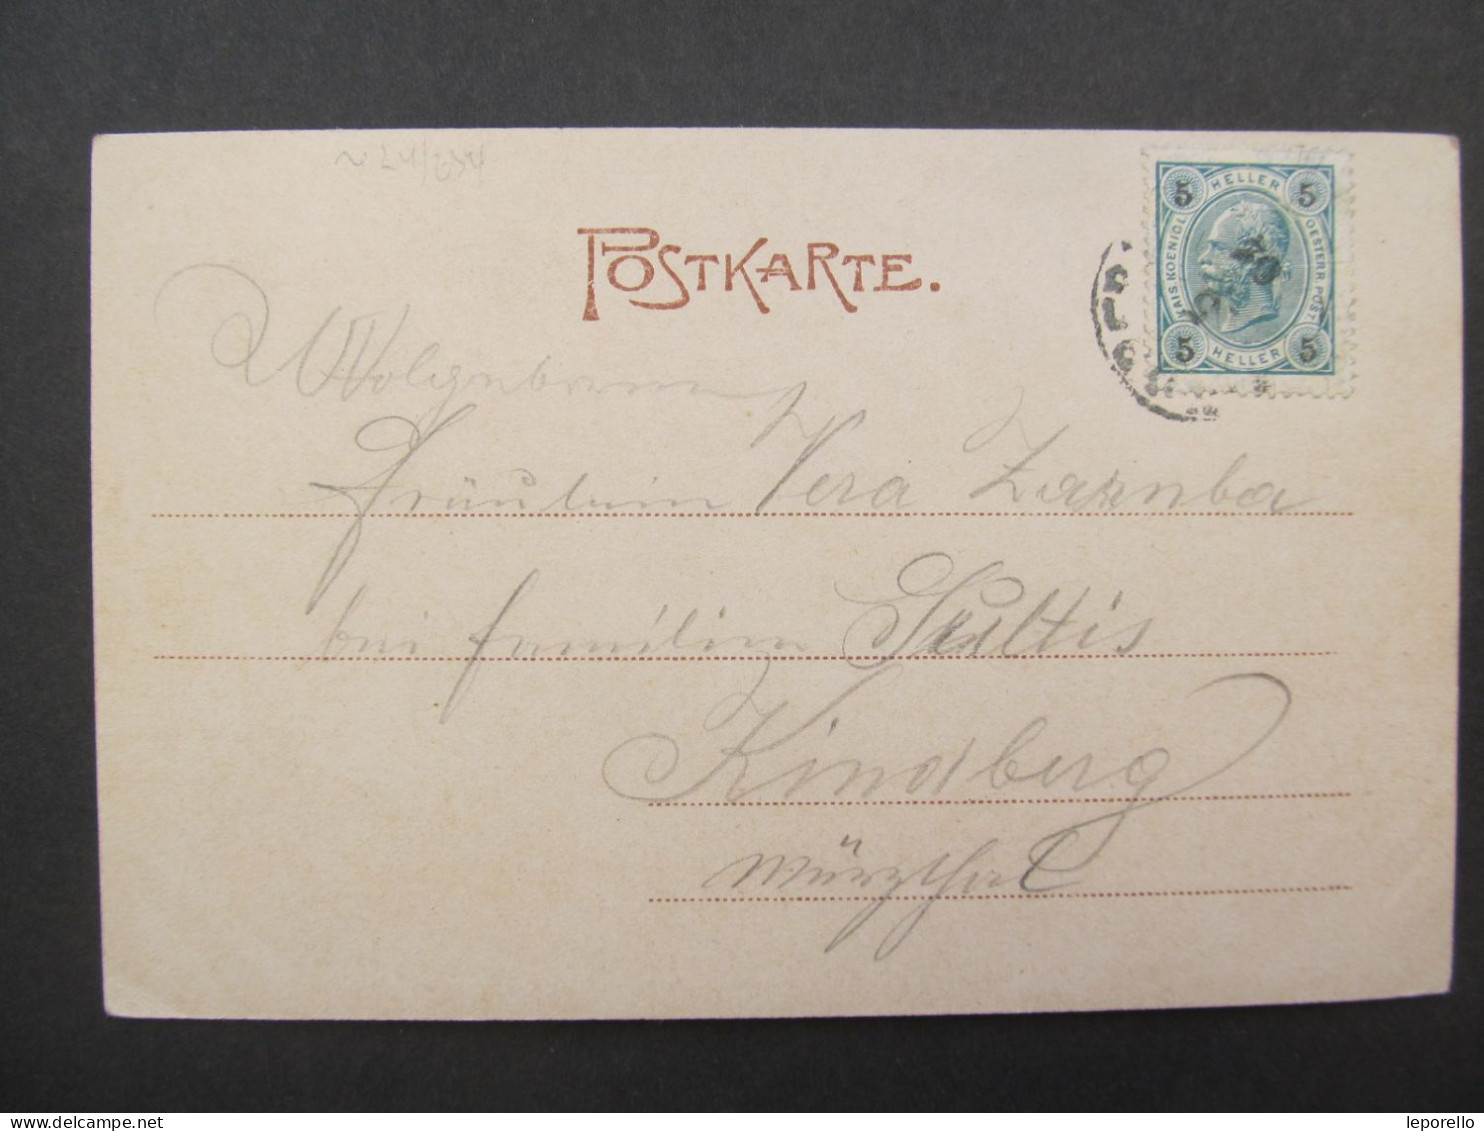 POSTKARTE.
5 HELLER 5
KAIS KOENIGL OESTERR POST
5 HELLER 5
Wolgeboren
Fräulein Vera Zaruba
bei Familien Sultis
Kindberg
Mürzthal
leporello